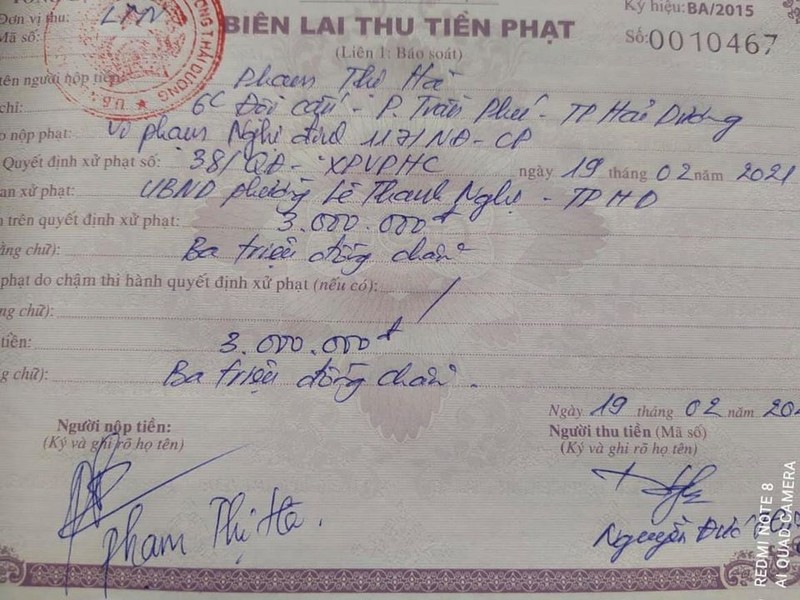 Đơn vị thu:
LTN
Mã số:
ƯƠNG T.HẢI DƯƠNG
BIÊN LAI THU TIỀN PHẠT
(Liên 1: Báo soát)
Ký hiệu: BA/2015
Số: 0010467
tên người nộp tiền: Phạm Thị Hà
chỉ: 6C Đội Cấn - P. Trần Phú - TP Hải Dương
o nộp phạt: Vi phạm Nghị định 117/NĐ-CP
Quyết định xử phạt số: 38/QĐ-XPVPHC ngày 19 tháng 02 năm 2021
an xử phạt: UBND phường Lê Thanh Nghị - TPHD
n trên quyết định xử phạt: 3.000.000đ
ằng chữ): Ba triệu đồng chẵn
phạt do chậm thi hành quyết định xử phạt (nếu có): /
ng chữ):
tiền: 3.000.000đ
g chữ): Ba triệu đồng chẵn.
Ngày 19 tháng 02 năm 202
Người nộp tiền:
(Ký và ghi rõ họ tên)
Người thu tiền (Mã số)
(Ký và ghi rõ họ tên)
Phạm Thị Hà.
Nguyễn Đức
REDMI NOTE 8
AI QUAD CAMERA